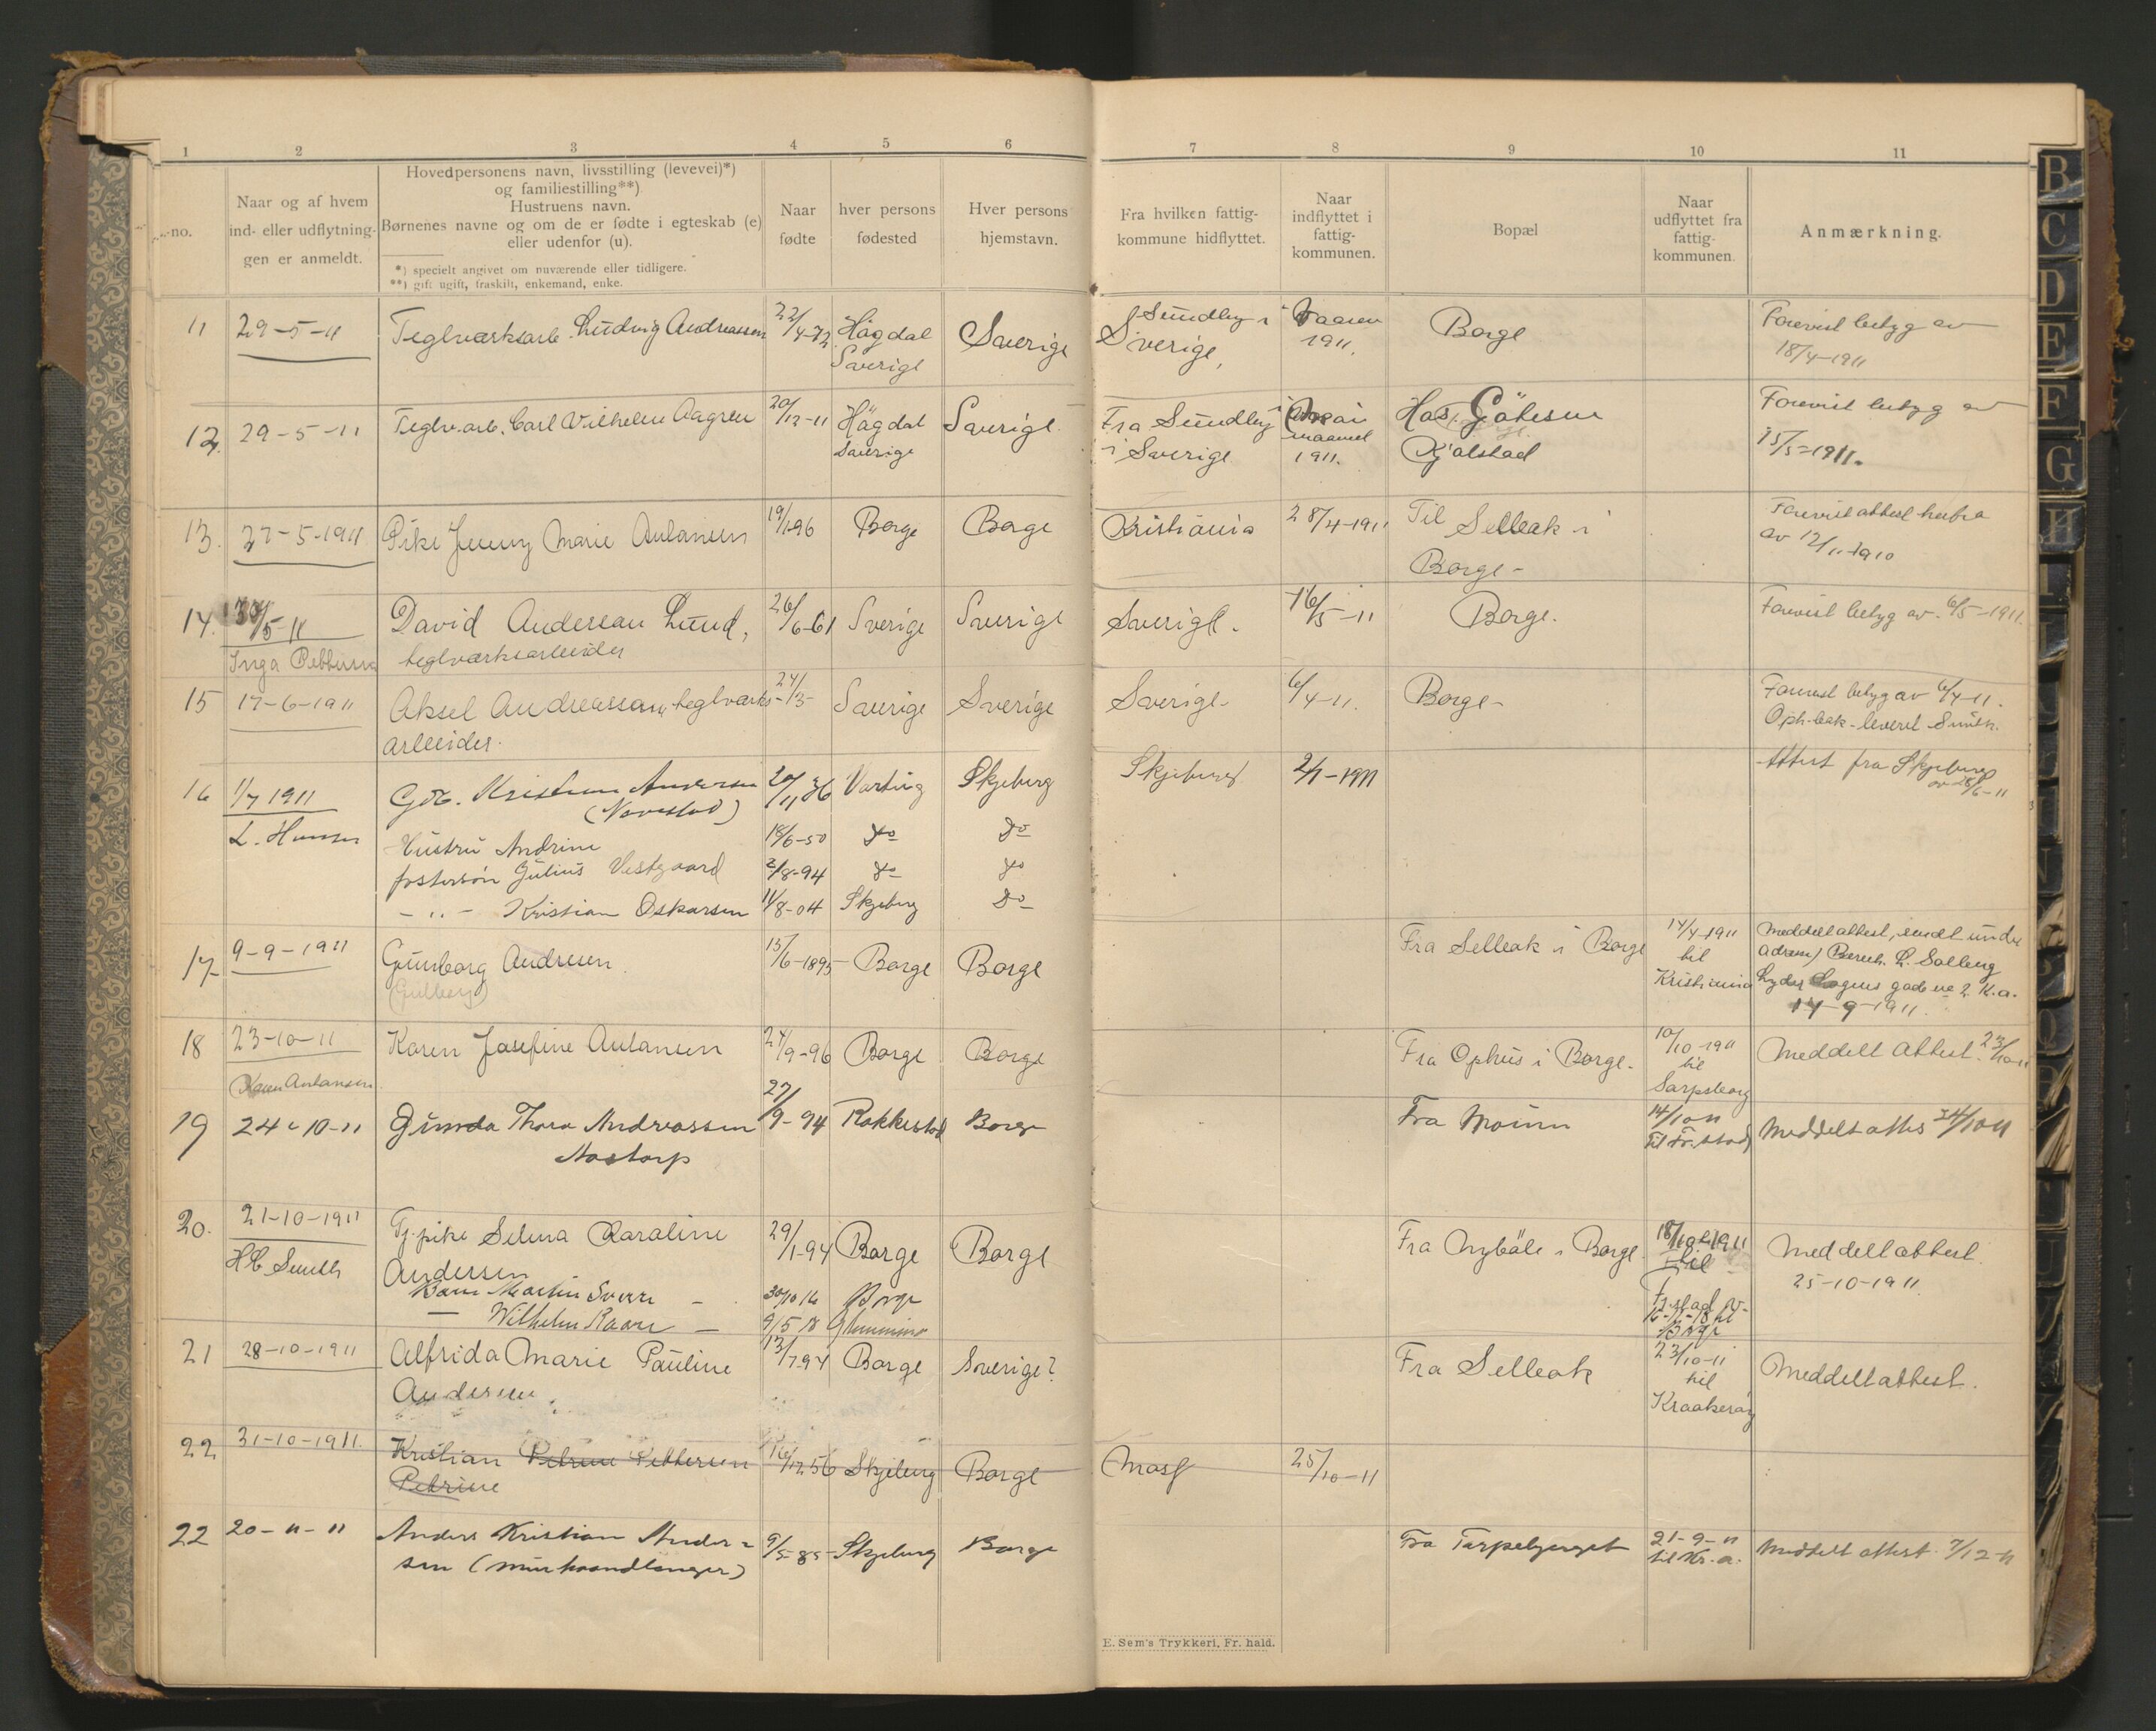 1 2 3 4 5 6 7 8 9 10 11
-no.
Naar og af hvem
ind- eller udflytning-
gen er anmeldt.
Hovedpersonens navn, livsstilling (levevei)*)
og familiestilling**)
Hustruens navn.
Børnenes navne og om de er fødte i egteskab (e)
eller udenfor (u).
*) specielt angivet om nuværende eller tidligere.
**) gift ugift, fraskilt, enkemand, enke.
Naar
fødte
hver persons
fødested
Hver persons
hjemstavn.
Fra hvilken fattig-
kommune hidflyttet.
Naar
indflyttet i
fattig-
kommunen.
Bopæl
Naar
udflyttet fra
fattig-
kommunen.
Anmærkning.
11 29-5-11 Teglværksarb. Ludvig Andreassen 22/4-72 Högdal Sverige Sundby i Vaaren Borge Forevist betyg av
Sverige Sverige, 1911. 18/4-1911
12. 29-5-11 Teglv.arb. Carl Vilhelm Aagren 20/12-11 Högdal Sverige Fra Sundby Forevist betyg av
Sverige i Sverige maaned 1911. Kjølstad 15/5-1911.
13. 27-5-1911 Pike Jenny Marie Antonsen 19/1-96 Borge Borge Kristiania 28/4-1911 Til Selleak i Forevist attest herfra
Borge- av 12/11-1910
14. 30/5 11 David Anderson Lund, 26/6-61 Sverige Sverige Sverige. 16/5-11 Borge. Forevist betyg av 6/5-1911.
Inga Pettersen teglværksarbeider
15 17-6-1911 Aksel Andreasson, teglværks- 24/3- Sverige Sverige Sverige- 6/4-11. Borge- Forevist betyg av 6/4-11.
arbeider.
16 1/7 1911 Gdb. Kristian Andersen 20/11 36 Varteig Skjeberg Skjeberg 2/1-1911 Attest fra Skjeberg
(Navestad) av 28/6-11
L. Hansen
Hustru Andrine 18/6-50 do do
fostersøn Julius Vestgaard 2/8-94 do do
- " - Kristian Oskarsen 11/8-04 Skjeberg Do
17 9-9-1911 Gunborg Andresen 15/6-1895 Borge Borge Fra Selleak i Borge 14/4-1911 Meddelt attest, sendt under
(Gulberg) til adresse L. Solberg
Kristiania Lyder Sagens gade no 2 K.a.
14-9-1911.
18 23-10-11 Karen Josefine Antonsen 24/9-96 Borge Borge Fra Ophus i Borge. 10/10-1911 Meddelt Attest. 23/10-11
Karen Antonsen til
Sarpsborg
19 24-10-11 Gunda Thora Andreassen 27/9-94 Rakkestad Borge Fra Moum 14/10 11 Meddelt attes 24/10 11
Aastorp til Fr.stad
20. 21-10-1911 Tj.pike Selma Karoline 29/1-94 Borge Borge Fra Nybøle i Borge 18/10-1911 Meddelt attest.
H.C. Smith Andersen til 25-10-1911.
Barn Martin Sverre - 30/10 16 Borge Fr.stad
- Wilhelm Kaare - 9/5 18 Glemminge 16-12-18 til
Borge
21 28-10-1911 Alfrida Marie Pauline 13/7-94 Borge Sverige? Fra Selleak 23/10-11 Meddelt attest.
Andersen til
Kraakerøy
22 31-10-1911. Kristian Petrine Pettersen 16/12 56 Skjeberg Borge Moss 25/10-11
Petrine
22 20-11-11 Anders Kristian Ander- 9/5-85- Skjeberg Borge Fra Torpebjerget 21-9-11 Meddelt attest. 7/12-11
sen (murhaandlanger) til Kr.a.
E. Sem's Trykkeri, Fr. hald.
B
C
D
E
F
G
H